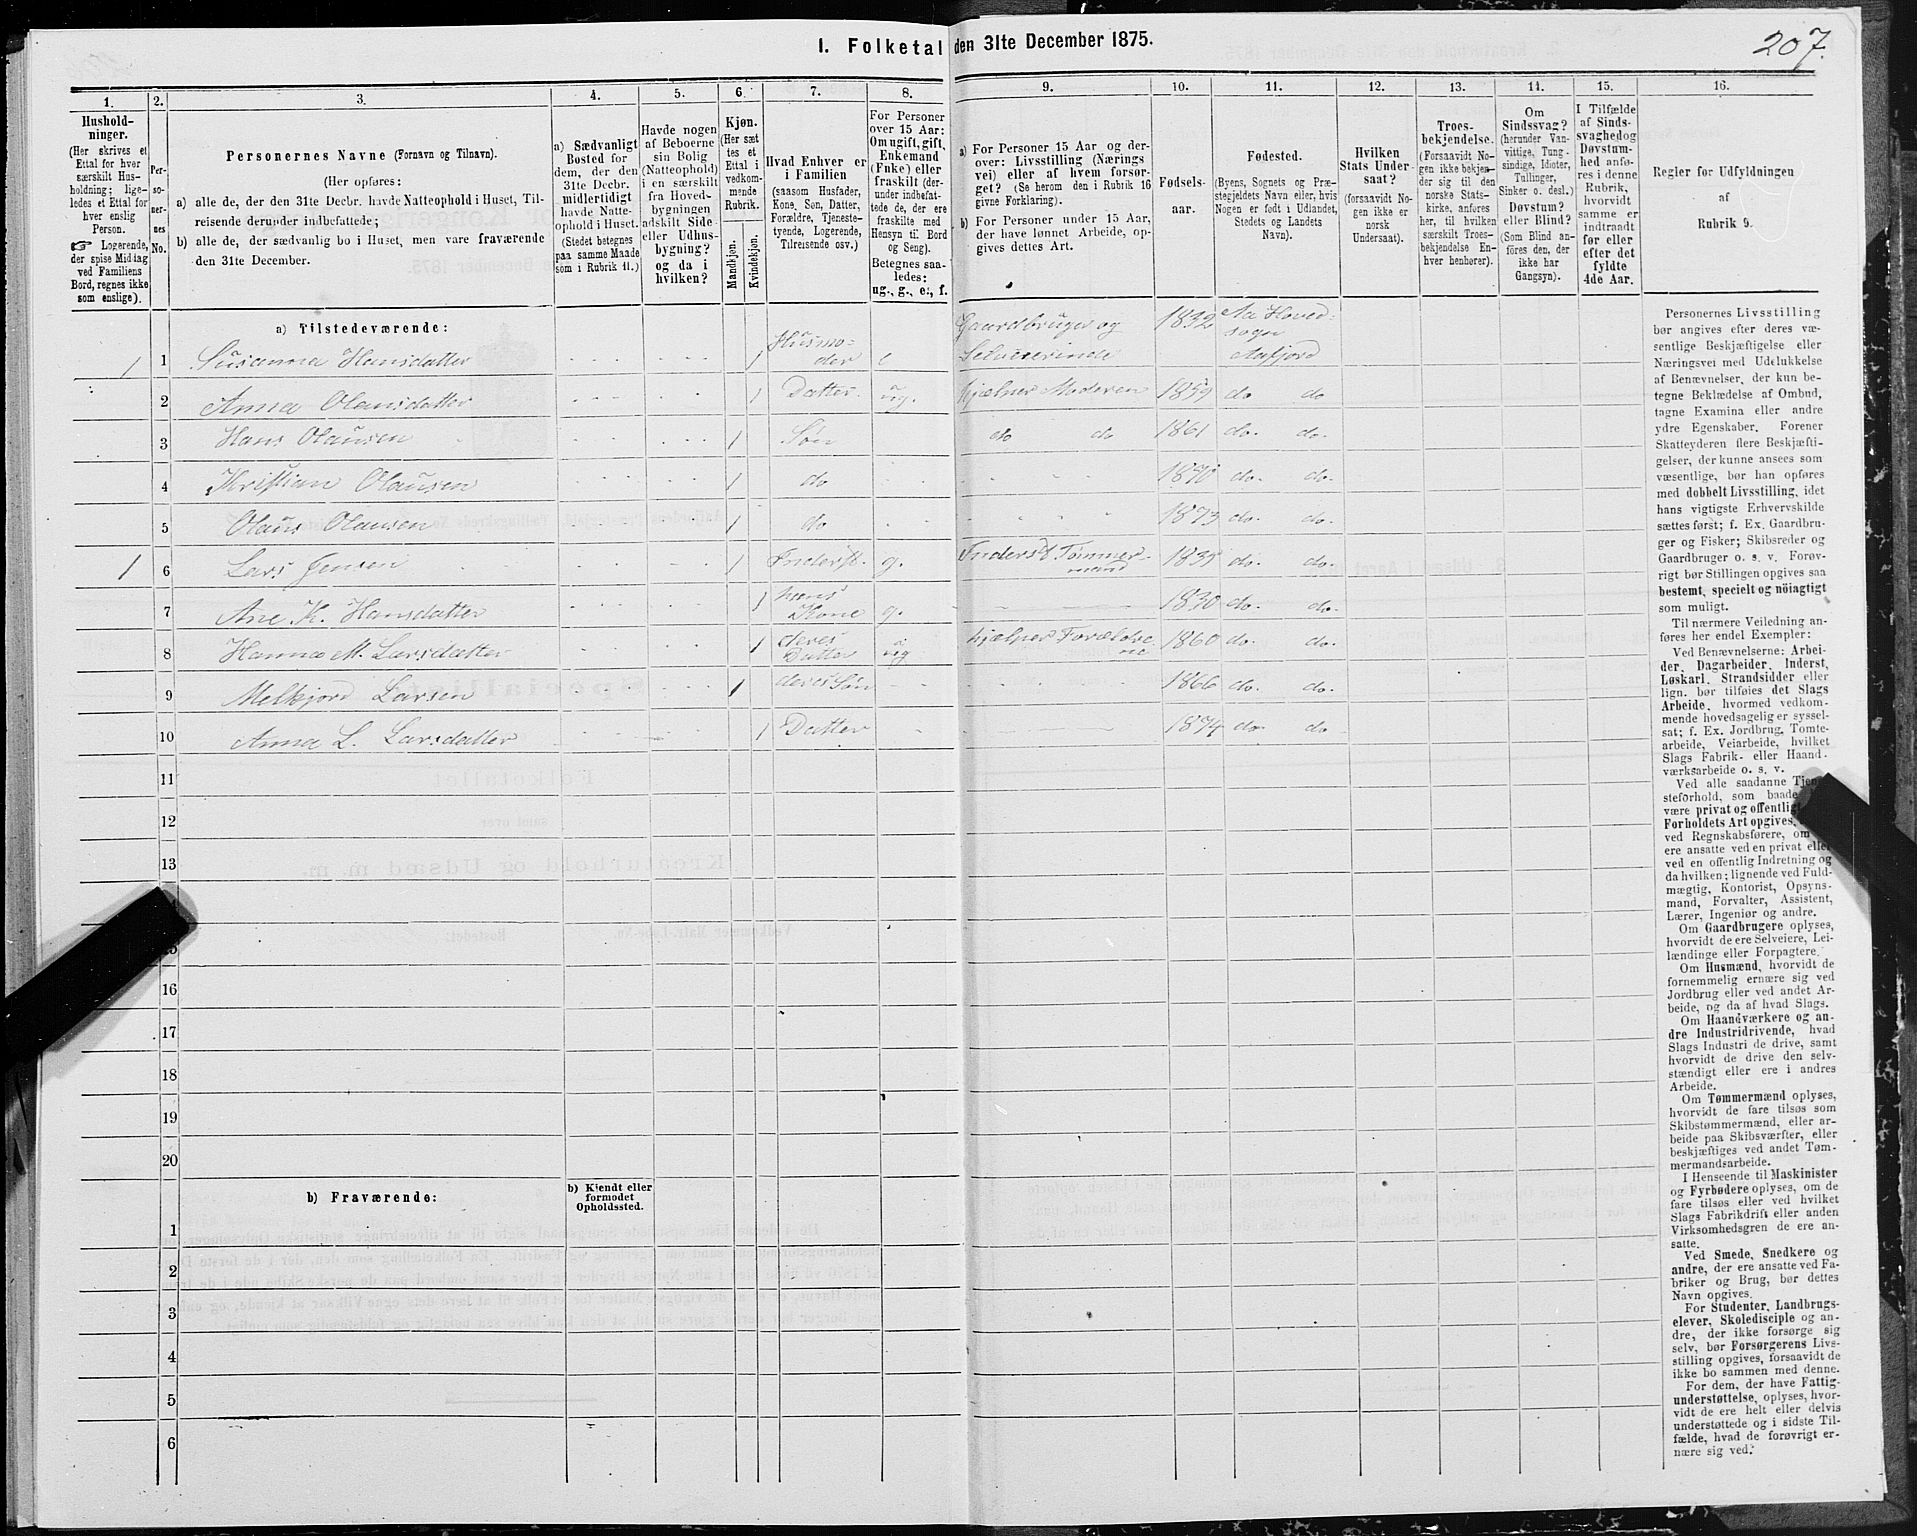 I. Folketal den 31te December 1875.
207.
1.
Hushold-
ninger.
(Her skrives et
Ettal for hver
særskilt Hus-
holdning; lige-
ledes et Ettal for
hver enslig
Person.
☞ Logerende,
der spise Middag
ved Familiens
Bord, regnes ikke
som enslige).
2.
Per-
so-
ner-
nes
No.
3.
Personernes Navne (Fornavn og Tilnavn).
(Her opføres:
a) alle de, der den 31te Decbr. havde Natteophold i Huset, Til-
reisende derunder indbefattede;
b) alle de, der sædvanlig bo i Huset, men vare fraværende
den 31te December.
4.
a) Sædvanligt
Bosted for
dem, der den
31te Decbr.
midlertidigt
havde Natte-
ophold i Huset.
(Stedet betegnes
paa samme Maade
som i Rubrik 11.)
5.
Havde nogen
af Beboerne
sin Bolig
(Natteophold)
i en særskilt
fra Hoved-
bygningen
adskilt Side
eller Udhus-
bygning?
og da i
hvilken?
6.
Kjøn.
(Her sæt
tes et
Ettal i
vedkom-
mende
Rubrik.
Mandkjøn.
Kvindekjøn.
7.
Hvad Enhver er
i Familien
(saasom Husfader,
Kone, Søn, Datter,
Forældre, Tjeneste-
tyende, Logerende,
Tilreisende osv.)
8.
For Personer
over 15 Aar:
Om ugift, gift,
Enkemand
(Enke) eller
fraskilt (der-
under indbefat-
tede de, der ere
fraskilte med
Hensyn til Bord
og Seng).
Betegnes saa-
ledes:
ug., g., e., f.
9.
a) For Personer 15 Aar og der-
over: Livsstilling (Nærings
vei) eller af hvem forsør-
get? (Se herom den i Rubrik 16
givne Forklaring).
b) For Personer under 15 Aar,
der have lønnet Arbeide, op-
gives dettes Art.
10.
Fødsels-
aar.
11.
Fødested.
(Byens, Sognets og Præ-
stegjeldets Navn eller, hvis
Nogen er født i Udlandet,
Stedets og Landets
Navn).
12.
Hvilken
Stats Under-
saat?
(forsaavidt No-
gen ikke er
norsk
Undersaat).
13.
Troes-
bekjendelse.
(Forsaavidt No-
gen ikke bekjen-
der sig til den
norske Stats-
kirke, anføres
her, til hvilken
særskilt Troes-
bekjendelse En-
hver henhører).
14.
Om
Sindssvag?
(herunder Van-
vittige, Tung-
sindige, Idioter,
Tullinger,
Sinker o. desl.)
Døvstum?
eller Blind?
(Som Blind an-
føres den, der
ikke har
Gangsyn).
15.
I Tilfælde
af Sinds-
svaghed og
Døvstum-
hed anfø-
res i denne
Rubrik,
hvorvidt
samme er
indtraadt
før eller
efter det
fyldte
4de Aar.
16.
Regler for Udfyldningen
af
Rubrik 9.
a) Tilstedeværende:
1 1 Susanna Hansdatter 1 Husmo-
der e Gaardbruger og
Selveierinde 1832 Aa Hoved-
sogn
Aafjord
2 Anna Olausdatter 1 Datter ug. hjælper Moderen 1859 do do
3 Hans Olausen 1 Søn do do 1861 do. do.
4 Kristian Olausen 1 do 1870 do. do.
5 Olaus Olausen 1 do 1873 do. do.
1 6 Lars Jensen 1 Inderst. g. Inderst Tømmer-
mand 1835 do. do.
7 Ane K. Hansdatter 1 hans
Kone g. 1830 do. do.
8 Hanna M. Larsdatter 1 deres
Datter ug hjælper Forældre
ne 1860 do. do.
9 Melkjord Larsen 1 deres Søn 1866 do. do.
10 Anna L. Larsdatter 1 Datter 1874 do. do
11
12
13
15
16
17
18
19
20
b) Fraværende:
b) Kjendt eller
formodet
Opholdssted.
1
2
3
4
5
6
Personernes Livsstilling
bør angives efter deres væ-
sentlige Beskjæftigelse eller
Næringsvei med Udelukkelse
af Benævnelser, der kun be-
tegne Beklædelse af Ombud,
tagne Examina eller andre
ydre Egenskaber. Forener
Skatteyderen flere Beskjæfti-
gelser, der kunne ansees som
væsentlige, bør han opføres
med dobbelt Livsstilling, idet
hans vigtigste Erhvervskilde
sættes først; f. Ex. Gaardbru-
ger og Fisker; Skibsreder og
Gaardbruger o. s. v. Forøv-
rigt bør Stillingen opgives saa
bestemt, specielt og nöiagtigt
som muligt.
Til nærmere Veiledning an-
føres her endel Exempler:
Ved Benævnelserne: Arbei-
der, Dagarbeider, Inderst,
Løskarl, Strandsidder eller
lign. bør tilføies det Slags
Arbeide, hvormed vedkom-
mende hovedsagelig er syssel-
sat; f. Ex. Jordbrug, Tomte-
arbeide, Veiarbeide, hvilket
Slags Fabrik- eller Haand-
værksarbeide o. s. v.
Ved alle saadanne Tjene-
steforhold, som baade
være privat og offentligt
Forholdets Art opgives,
ved Regnskabsførere, om
ere ansatte ved en privat eller
ved en offentlig Indretning og
da hvilken; lignende ved Fuld-
mægtig, Kontorist, Opsyns-
mand, Forvalter, Assistent,
Lærer, Ingeniør og andre.
Om Gaardbrugere oplyses,
hvorvidt de ere Selveiere, Lei-
lændinge eller Forpagtere.
Om Husmænd, hvorvidt de
fornemmelig ernære sig ved
Jordbrug eller ved andet Ar-
beide, og da af hvad Slags.
Om Haandværkere og an-
dre Industridrivende, hvad
Slags Industri de drive, samt
hvorvidt de drive den selv-
stændigt eller ere i andres
Arbeide.
Om Tømmermænd oplyses,
hvorvidt de fare tilsøs som
Skibstømmermænd, eller ar-
beide paa Skibsværfter, eller
beskjæftiges ved andet Tøm-
mermandsarbeide.
I Henseende til Maskinister
og Fyrbødere oplyses, om de
fare tilsøs eller ved hvilket
Slags Fabrikdrift eller anden
Virksomhedsgren de ere an-
satte.
Ved Smede, Snedkere og
andre, der ere ansatte ved Fa-
briker og Brug, bør dettes
Navn opgives.
For Studenter, Landbrugs-
elever, Skoledisciple og an-
dre, der ikke forsørge sig
selv, bør Forsørgerens Livs-
stilling opgives, forsaavidt de
ikke bo sammen med denne.
For dem, der have Fattig-
understøttelse, oplyses, hvor-
vidt de ere helt eller delvis
understøttede og i sidste Til-
fælde, hvad de forøvrigt er-
nære sig ved.